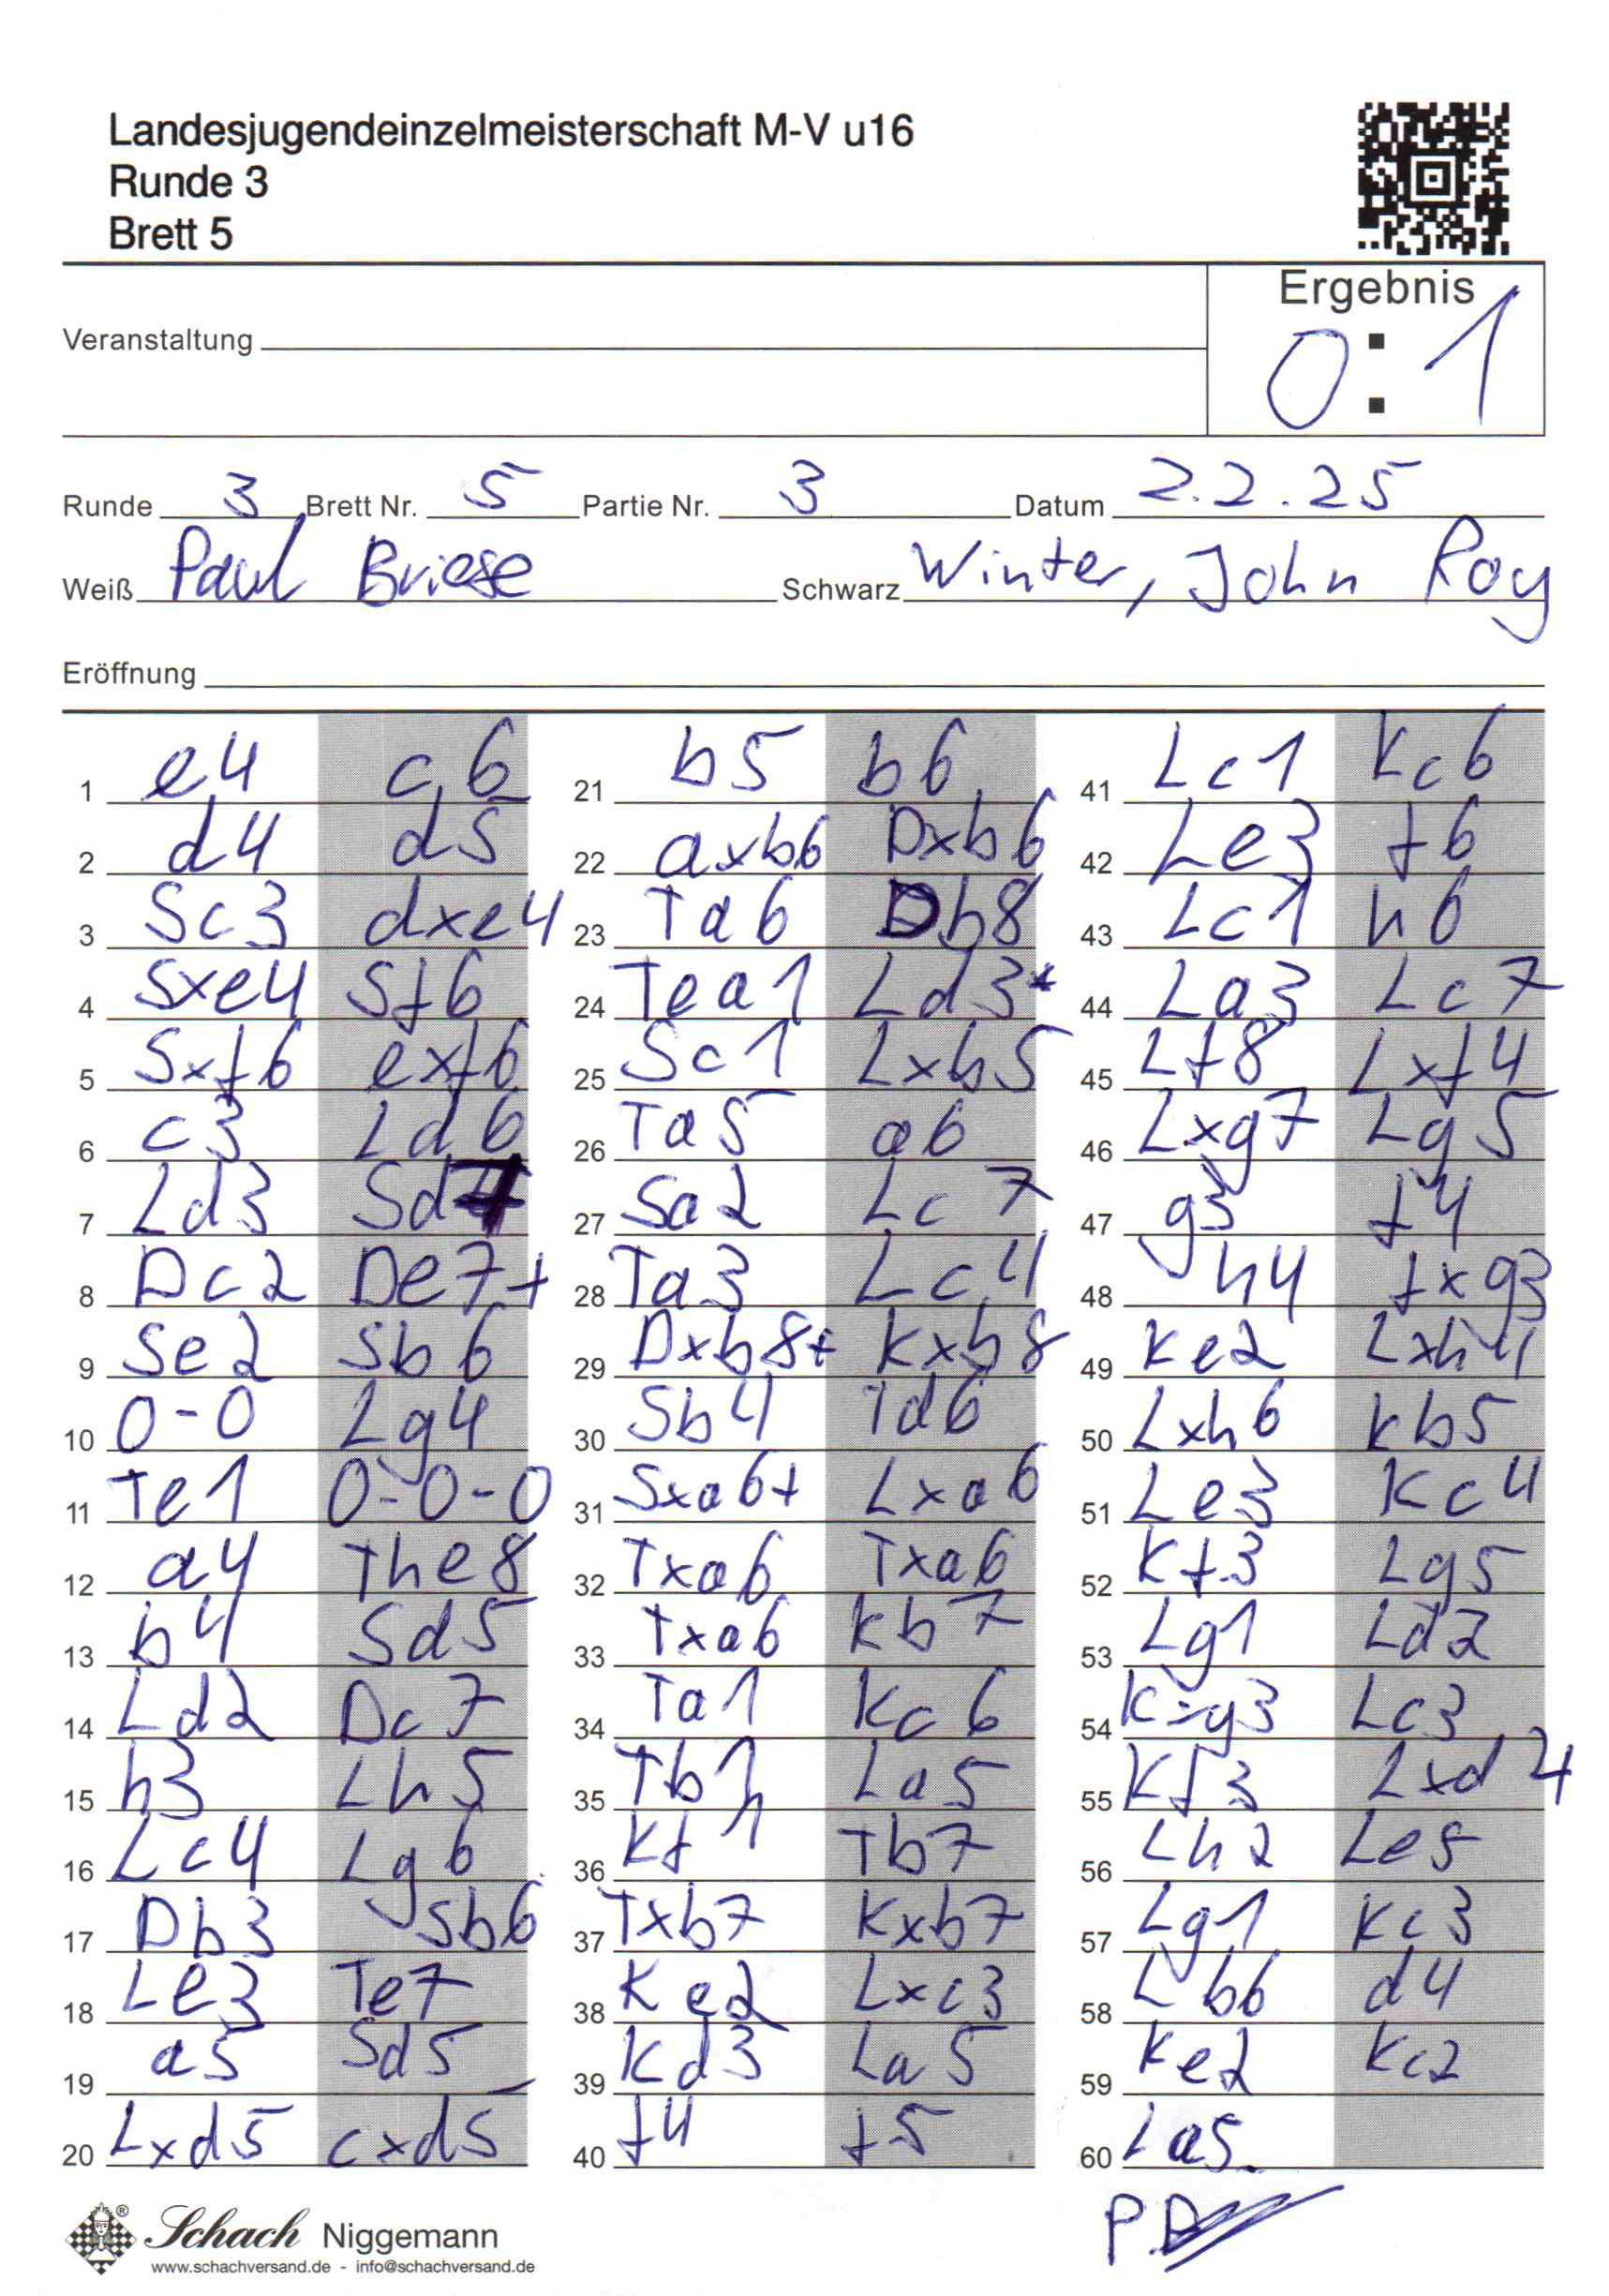 Landesjugendeinzelmeisterschaft M-V u16
Runde 3
Brett 5
Ergebnis
0:1
Veranstaltung
Runde 3 Brett Nr. 5 Partie Nr. 3 Datum 2.2.25
Weiß Paul Briese Schwarz Winter, John Roy
Eröffnung
1 e4 c6
2 d4 d5
3 Sc3 dxe4
4 Sxe4 Sf6
5 Sxf6 exf6
6 c3 Ld6
7 Ld3 Sd7
8 Dc2 De7+
9 Se2 Sb6
10 0-0 Lg4
11 Te1 0-0-0
12 a4 The8
13 b4 Sd5
14 Ld2 Dc7
15 h3 Lh5
16 Lc4 Lg6
17 Db3 Sb6
18 Le3 Te7
19 a5 Sd5
20 Lxd5 cxd5
21 b5 b6
22 axb6 Dxb6
23 Ta6 Db8
24 Tea1 Ld3*
25 Sc1 Lxb5
26 Ta5 a6
27 Sa2 Lc7
28 Ta3 Lc4
29 Dxb8+ Kxb8
30 Sb4 Td6
31 Sxa6+ Lxa6
32 Txa6 Txa6
33 Txa6 Kb7
34 Ta1 Kc6
35 Tb1 La5
36 Kf1 Tb7
37 Txb7 Kxb7
38 Ke2 Lxc3
39 Kd3 La5
40 f4 f5
41 Lc1 Kc6
42 Le3 f6
43 Lc1 h6
44 La3 Lc7
45 Lf8 Lxf4
46 Lxg7 Lg5
47 g3 f4
48 h4 fxg3
49 Ke2 Lxh4
50 Lxh6 Kb5
51 Le3 Kc4
52 Kf3 Lg5
53 Lg1 Ld2
54 Kxg3 Lc3
55 Kf3 Lxd4
56 Lh2 Le5
57 Lg1 Kc3
58 Lb6 d4
59 Ke2 Kc2
60 La5
Schach Niggemann
www.schachversand.de - info@schachversand.de